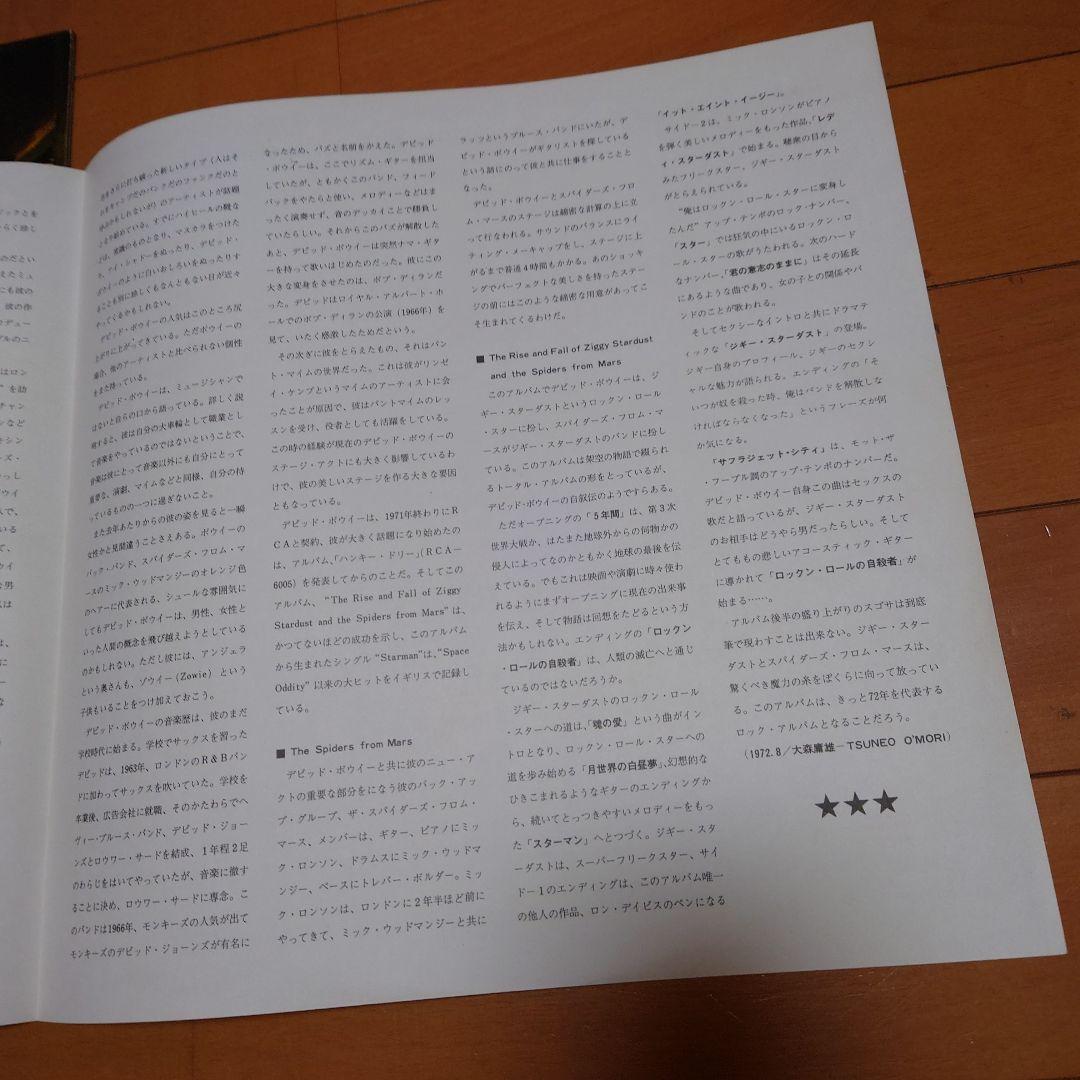 力をさらに打ち破った新しいタイプ(人はそ
れをキャンプだのパンクだのファンクだのと
呼ぶかもしれないが)のアーティストが話題
となり始めている。すでにハイヒールの靴な
どは、常識のものとなり、マスカラをつけた
り、アイ・シャドーをぬったり、デビッド・
ボウイーのように白いおしろいをぬったりす
ることも別に珍しくもなんともない日が近々
やってくるやもしれない。
デビッド・ボウイーの人気はこのところ尻
上がりに上がってきている。ただボウイーの
場合、他のアーティストと比べられない個性
をまた持っている。
デビッド・ボウイーは、ミュージシャンで
はないと自らの口から語っている。詳しく説
明すると、彼は自分の大車輪として職業とし
て音楽をやっているのではないということで、
音楽は彼にとって音楽以外にも自分にとって
重要な、演劇、マイムなどと同様、自分の持
っているものの一つに過ぎないこと。
また去年あたりからの彼の姿を見ると一瞬
女性かと見間違うことさえある。ボウイーの
バック・バンド、スパイダーズ・フロム・マ
ースのミック・ウッドマンジーのオレンジ色
のヘアーに代表される、シュールな雰囲気に
してもデビッド・ボウイーは、男性、女性と
いった人間の概念を飛び越えようとしている
のかもしれない。ただし彼には、アンジェラ
という奥さんも、ゾウイー(Zowie)という
子供もいることをつけ加えておこう。
デビッド・ボウイーの音楽歴は、彼のまだ
学校時代に始まる。学校でサックスを習った
デビッドは、1963年、ロンドンのR&Bバン
ドに加わってサックスを吹いていた。学校を
卒業後、広告会社に就職、そのかたわらでヘ
ヴィー・ブルース・バンド、デビッド・ジョー
ンズとロウワー・サードを結成、1年程2足
のわらじをはいてやっていたが、音楽に徹す
ることに決め、ロウワー・サードに専念。こ
のバンドは1966年、モンキーズの人気が出て
モンキーズのデビッド・ジョーンズが有名に
なったため、バズと名前をかえた。デビッド
・ボウイーは、ここでリズム・ギターを担当
していたが、ともかくこのバンド、フィード
バックをやたらと使い、メロディーなどはま
ったく演奏せず、音のデッカイことで勝負し
ていたらしい。それからこのバズが解散した
あと、デビッド・ボウイーは突然ナマ・ギタ
ーを持って歌いはじめたのだった。彼にこの
大きな変身をさせたのは、ボブ・ディランだ
った。デビッドはロイヤル・アルバート・ホ
ールでのボブ・ディランの公演(1966年)を
見て、いたく感激したためだという。
その次ぎに彼をとらえたもの、それはパン
ト・マイムの世界だった。これは彼がリンゼ
イ・ケンプというマイムのアーティストに会
ったことが原因で、彼はパントマイムのレッ
スンを受け、役者としても活躍をしている。
この時の経験が現在のデビッド・ボウイーの
ステージ・アクトにも大きく影響しているわ
けで、彼の美しいステージを作る大きな要因
ともなっている。
デビッド・ボウイーは、1971年終わりにR
CAと契約、彼が大きく話題になり始めたの
は、アルバム、「ハンキー・ドリー」(RCA—
6005)を発表してからのことだ。そしてこの
アルバム、“The Rise and Fall of Ziggy
Stardust and the Spiders from Mars”は、
かつてないほどの成功を示し、このアルバム
から生まれたシングル“Starman”は、“Space
Oddity”以来の大ヒットをイギリスで記録し
ている。
■ The Spiders from Mars
デビッド・ボウイーと共に彼のニュー・ア
クトの重要な部分をになう彼のバック・アッ
プ・グループ、ザ・スパイダーズ・フロム・
マース、メンバーは、ギター、ピアノにミッ
ク・ロンソン、ドラムスにミック・ウッドマ
ンジー、ベースにトレバー・ボルダー。ミッ
ク・ロンソンは、ロンドンに2年半ほど前に
やってきて、ミック・ウッドマンジーと共に
ラッツというブルース・バンドにいたが、デ
ビッド・ボウイーがギタリストを探している
という話にのって彼と共に仕事をすることと
なった。
デビッド・ボウイーとスパイダーズ・フロ
ム・マースのステージは綿密な計算の上に立
って行なわれる。サウンドのバランスにライ
ティング・メーキャップをし、ステージに上
がるまで普通4時間もかかる。あのショッキ
ングでパーフェクトな美しさを持ったステー
ジの前にはこのような綿密な用意があってこ
そ生まれてくるわけだ。
■ The Rise and Fall of Ziggy Stardust
and the Spiders from Mars
このアルバムでデビッド・ボウイーは、ジ
ギー・スターダストというロックン・ロール
・スターに扮し、スパイダーズ・フロム・マ
ースがジギー・スターダストのバンドに扮し
ている。このアルバムは架空の物語で綴られ
るトータル・アルバムの形をとっているが、
デビッド・ボウイーの自叙伝のようですらある。
ただオープニングの「5年間」は、第3次
世界大戦か、はたまた地球外からの何物かの
侵入によってなのかともかく地球の最後を伝
えている。でもこれは映画や演劇に時々使わ
れるようにまずオープニングに現在の出来事
を伝え、そして物語は回想をたどるという方
法かもしれない。エンディングの「ロックン
・ロールの自殺者」は、人類の滅亡へと通じ
ているのではないだろうか。
ジギー・スターダストのロックン・ロール
・スターへの道は、「魂の愛」という曲がイン
トロとなり、ロックン・ロール・スターへの
道を歩み始める「月世界の白昼夢」、幻想的な
ひきこまれるようなギターのエンディングか
ら、続いてとっつきやすいメロディーをもっ
た「スターマン」へとつづく。ジギー・スタ
ーダストは、スーパーフリークスター、サイ
ド—1のエンディングは、このアルバム唯一
の他人の作品、ロン・デイビスのペンになる
「イット・エイント・イージー」。
サイド—2は、ミック・ロンソンがピアノ
を弾く美しいメロディーをもった作品、「レデ
ィ・スターダスト」で始まる。聴衆の目から
みたフリークスター、ジギー・スターダスト
がとらえられている。
“俺はロックン・ロール・スターに変身し
たんだ”アップ・テンポのロック・ナンバー、
「スター」では狂気の中にいるロックン・ロ
ール・スターの歌がうたわれる。次のハード
なナンバー、「君の意志のままに」はその延長
にあるような曲であり、女の子との関係やバ
ンドのことが歌われる。
そしてセクシーなイントロと共にドラマテ
ィックな「ジギー・スターダスト」の登場。
ジギー自身のプロフィール、ジギーのセクシ
ャルな魅力が語られる。エンディングの「そ
いつが奴を殺った時、俺はバンドを解散しな
ければならなくなった」というフレーズが何
か気になる。
「サフラジェット・シティ」は、モット・ザ
・フープル調のアップ・テンポのナンバーだ。
デビッド・ボウイー自身この曲はセックスの
歌だと語っているが、ジギー・スターダスト
のお相手はどうやら男だったらしい。そして
とてももの悲しいアコースティック・ギター
に導かれて「ロックン・ロールの自殺者」が
始まる……。
アルバム後半の盛り上がりのスゴサは到底
筆で現わすことは出来ない。ジギー・スター
ダストとスパイダーズ・フロム・マースは、
驚くべき魔力の糸をぼくらに向って放ってい
る。このアルバムは、きっと72年を代表する
ロック・アルバムとなることだろう。
(1972.8/大森庸雄—TSUNEO O'MORI)
★★★